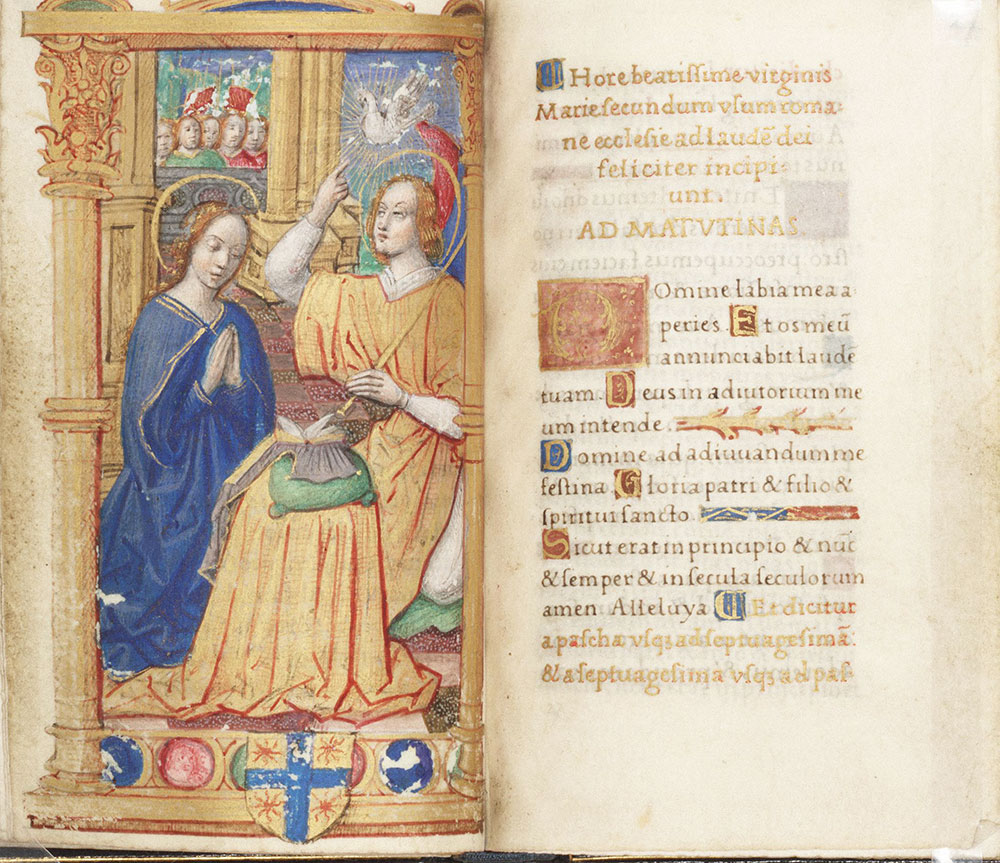 Hore beatissime virginis
Marie secundum vsum roma
ne ecclesie ad laudē dei
feliciter incipi
unt.
AD MATVTINAS
Domine labia mea a
peries. Et os meū
annunciabit laudē
tuam. Deus in adiutorium me
um intende.
Domine ad adiuuandum me
festina. Gloria patri & filio &
spiritui sancto.
Sicut erat in principio & nūc
& semper & in secula seculorum
amen Alleluya Et dicitur
a pascha vsq; ad septuagesimā:
& a septuagesima vsq; ad pas